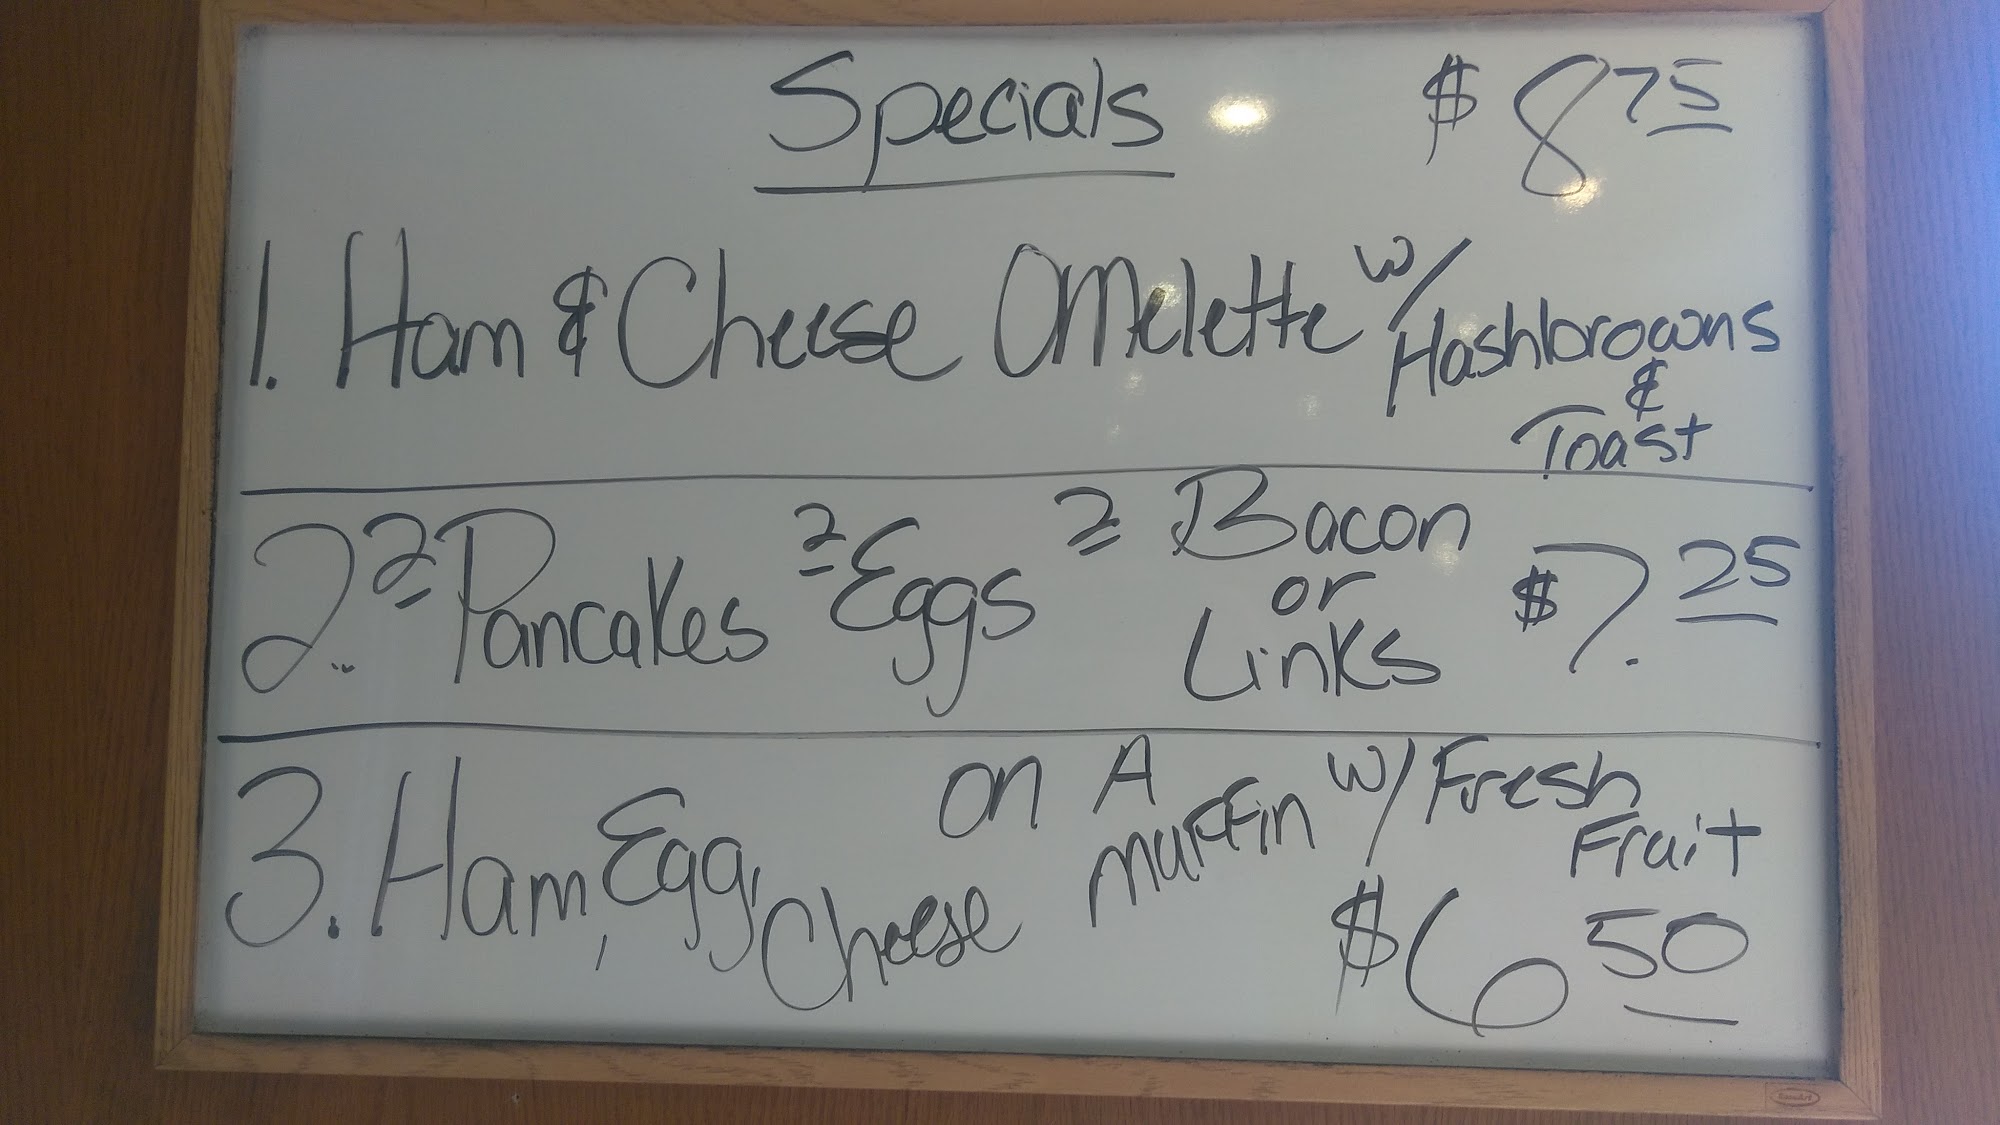 Specials $ 8 75
1. Ham & Cheese Omelette w/
Hashbrowns
&
Toast
2. 2 Pancakes 2 Eggs 2 Bacon
or
Links $7.25
3. Ham, Egg, Cheese on A muffin w/ Fresh
Fruit
$6 50